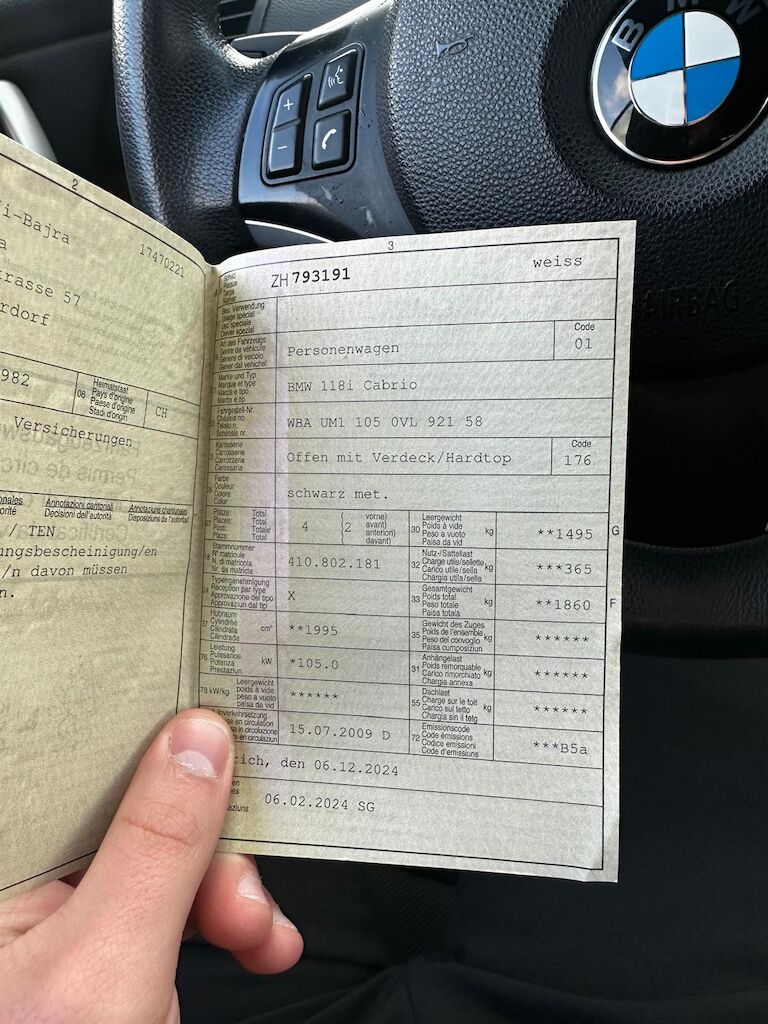 BMW
+
−
AIRBAG
2
i-Bajra
a
17470221
rasse 57
rdorf
982
08
Heimatstaat
Pays d'origine
Paese d'origine
Stadi d'origin
CH
Versicherungen
Annotazioni cantonali
Decisioni dell'autorità
Annotaziuns chantunalas
Disposiziuns da l'autoritad
/ TEN
ungsbescheinigung/en
/n davon müssen
n.
3
Schild
Plaque
Targa
Numer
ZH 793191
weiss
Bes. Verwendung
Usage spécial
Uso speciale
Diever spezial
Art des Fahrzeugs
Genre de véhicule
Genere di veicolo
Gener dal vehichel
Personenwagen
Code
01
Marke und Typ
Marque et type
Marca e tipo
Marca e tip
BMW 118i Cabrio
Fahrgestell-Nr.
Châssis no
Telaio n.
Schassis nr.
WBA UM1 105 0VL 921 58
Karosserie
Carrosserie
Carrozzeria
Carossaria
Offen mit Verdeck/Hardtop
Code
176
Farbe
Couleur
Colore
Color
schwarz met.
Plätze: Total
Places: Total
Posti: Totale
Plazs: Total
4
(2
vorne)
avant)
anteriori)
davant)
30
Leergewicht
Poids à vide
Peso a vuoto
Paisa da vid
kg
**1495
G
Stammnummer
N° matricule
N. di matricola
Nr. da matricla
410.802.181
32
Nutz-/Sattellast
Charge utile/sellette
Carico utile/sella
Chargia utila/sella
kg
***365
24
Typengenehmigung
Réception par type
Approvazione del tipo
Approvaziun dal tip
X
33
Gesamtgewicht
Poids total
Peso totale
Paisa totala
kg
**1860
F
37
Hubraum
Cylindrée
Cilindrata
Cilindrada
cm³
**1995
35
Gewicht des Zuges
Poids de l'ensemble
Peso del convoglio
Paisa cumposiziun
kg
******
76
Leistung
Puissance
Potenza
Prestaziun
kW
*105.0
31
Anhängelast
Poids remorquable
Carico rimorchiato
Chargia annexa
kg
******
78 kW/kg
Leergewicht
poids à vide
peso a vuoto
paisa da vid
******
55
Dachlast
Charge sur le toit
Carico sul tetto
Chargia sin il tetg
kg
******
Inverkehrsetzung
15.07.2009 D
72
Emissionscode
Code émissions
Codice emissioni
Code d'emissiuns
***B5a
rich, den 06.12.2024
06.02.2024 SG